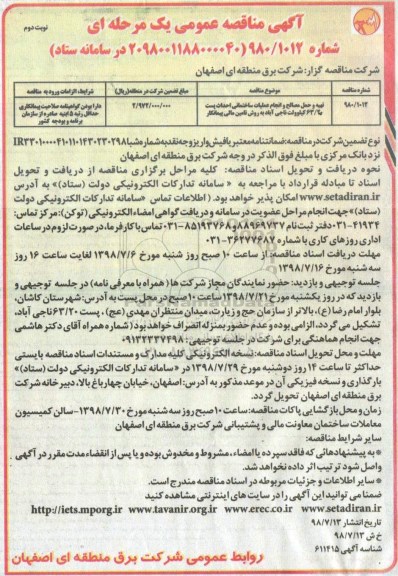 نوبت دوم
آگهی مناقصه عمومی یک مرحله ای
شماره ۹۸۰/۱۰۱۲ (۲۰۹۸۰۰۱۱۸۸۰۰۰۰۴۰ در سامانه ستاد)
شرکت مناقصه گزار: شرکت برق منطقه ای اصفهان
شماره مناقصه
موضوع مناقصه
مبلغ تضمین شرکت در مناقصه (ریال)
شرایط، الزامات ورود به مناقصه
۹۸۰/۱۰۱۲
تهیه و حمل مصالح و انجام عملیات ساختمانی احداث پست ۶۳/۲۰ کیلوولت ناجی آباد به روش تامین مالی پیمانکار
۲/۹۷۲/۰۰۰/۰۰۰
دارا بودن گواهینامه صلاحیت پیمانکاری حداقل رتبه ۵ ابنیه صادره از سازمان برنامه و بودجه کشور
نوع تضمین شرکت در مناقصه: ضمانتنامه معتبر یا فیش واریز وجه نقد به شماره شبا IR۲۳۰۱۰۰۰۰۴۱۰۱۱۰۱۴۳۰۲۳۰۲۹۸
نزد بانک مرکزی با مبلغ فوق الذکر در وجه شرکت برق منطقه ای اصفهان
نحوه دریافت و تحویل اسناد مناقصه: کلیه مراحل برگزاری مناقصه از دریافت و تحویل
اسناد تا مبادله قرارداد با مراجعه به « سامانه تدارکات الکترونیکی دولت (ستاد)» به آدرس
www.setadiran.ir امکان پذیر خواهد بود. ( اطلاعات تماس «سامانه تدارکات الکترونیکی دولت
(ستاد)» جهت انجام مراحل عضویت در سامانه و دریافت گواهی امضاء الکترونیکی (توکن): مرکز تماس:
۴۱۹۳۴-۰۲۱ دفتر ثبت نام ۸۸۹۶۹۷۳۷ و ۸۵۱۹۳۷۶۸-۰۲۱) تماس با کارفرما، در صورت لزوم در ساعات
اداری روزهای کاری با شماره ۳۶۲۷۷۶۸۷-۰۳۱
مهلت دریافت اسناد مناقصه: از ساعت ۱۰ صبح روز شنبه مورخ ۱۳۹۸/۷/۶ لغایت ساعت ۱۶ روز
سه شنبه مورخ ۱۳۹۸/۷/۱۶
جلسه توجیهی و بازدید: حضور نمایندگان مجاز شرکت ها ( همراه با معرفی نامه) در جلسه توجیهی و
بازدید که در روز یکشنبه مورخ ۱۳۹۸/۷/۲۱ ساعت ۱۰ صبح در محل پست به آدرس: شهرستان کاشان،
بلوار امام رضا (ع)، بالاتر از سازمان حج و زیارت، میدان منتظران مهدی (عج)، پست ۶۳/۲۰ ناجی آباد،
تشکیل می گردد، الزامی بوده و عدم حضور بمنزله انصراف خواهد بود( شماره همراه آقای دکتر هاشمی
جهت انجام هماهنگی برای شرکت در جلسه توجیهی: ۰۹۱۳۲۳۳۷۴۹۸)
مهلت و محل تحویل اسناد مناقصه: نسخه الکترونیکی کلیه مدارک و مستندات اسناد مناقصه بایستی
حداکثر تا ساعت ۱۴ روز دوشنبه مورخ ۱۳۹۸/۷/۲۹ در « سامانه تدارکات الکترونیکی دولت (ستاد)»
بارگذاری و نسخه فیزیکی آن در موعد مذکور به آدرس: اصفهان، خیابان چهارباغ بالا، دبیرخانه شرکت
برق منطقه ای اصفهان تحویل گردد.
زمان و محل بازگشایی پاکات مناقصه: ساعت ۱۰ صبح روز سه شنبه مورخ ۱۳۹۸/۷/۳۰- سالن کمیسیون
معاملات ساختمان معاونت مالی و پشتیبانی شرکت برق منطقه ای اصفهان
سایر شرایط مناقصه:
* به پیشنهادهائی که فاقد سپرده یا امضاء، مشروط و مخدوش بوده و یا پس از انقضاء مدت مقرر در آگهی
واصل شود ترتیب اثر داده نخواهد شد.
* سایر اطلاعات و جزئیات مربوطه در اسناد مناقصه مندرج است.
ضمنا می توانید این آگهی را در سایت های اینترنتی مشاهده کنید
http://iets.mporg.ir www.tavanir.org.ir www.erec.co.ir www.setadiran.ir
تاریخ انتشار ۹۸/۷/۱۳
خ ش ۹۸/۷/۱۳
شناسه آگهی ۶۱۱۴۱۵
روابط عمومی شرکت برق منطقه ای اصفهان